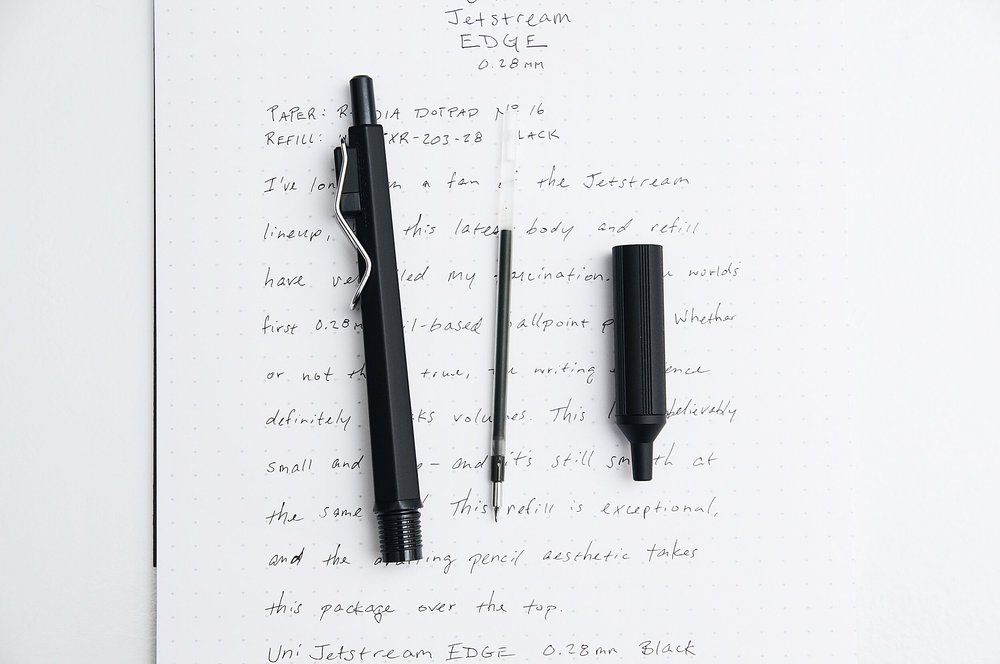 Jetstream
EDGE
0.28mm
PAPER: DOTPAD Nº 16
REFILL:
I've a fan the Jetstream
lineup, this latest body and refill
have my fascination. worlds
first 0.28mm ballpoint Whether
or not true, writing
definitely volumes. This
small and - and it's still smooth at
the same This refill is exceptional,
and the drafting pencil aesthetic takes
this package over the top.
Uni Jetstream EDGE 0.28mm Black